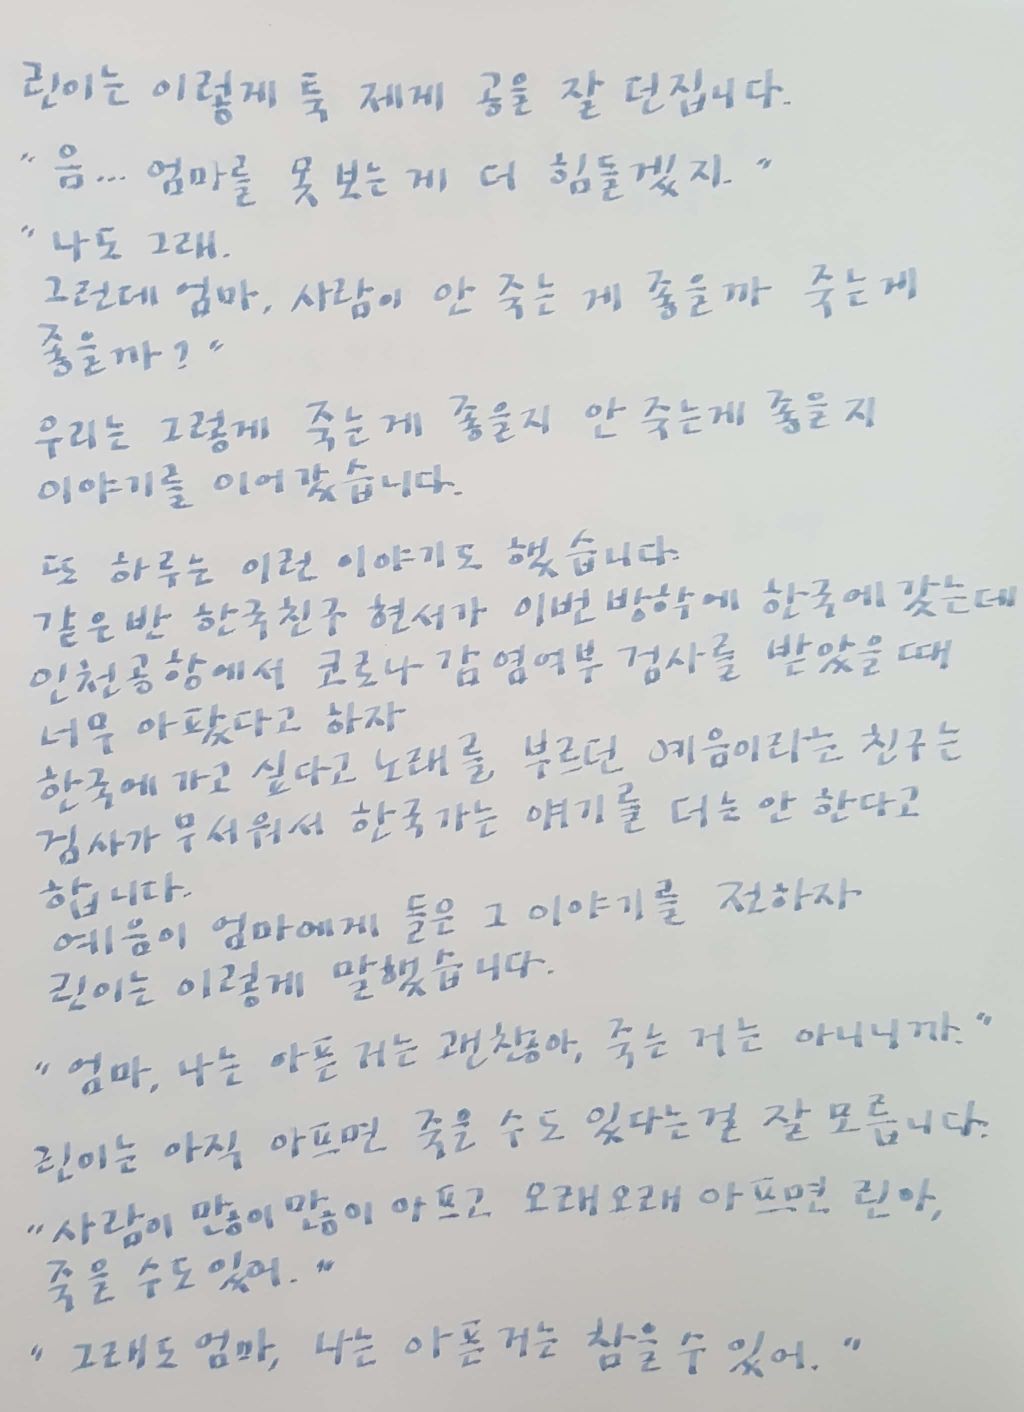 린이는 이렇게 툭 제게 공을 잘 던집니다.
“음... 엄마를 못 보는 게 더 힘들겠지.”
“나도 그래.
그런데 엄마, 사람이 안 죽는 게 좋을까 죽는게
좋을까?”
우리는 그렇게 죽는 게 좋을지 안 죽는게 좋을지
이야기를 이어갔습니다.
또 하루는 이런 이야기도 했습니다.
같은 반 한국친구 현서가 이번 방학에 한국에 갔는데
인천공항에서 코로나 감염여부 검사를 받았을 때
너무 아팠다고 하자
한국에 가고 싶다고 노래를 부르던 예음이라는 친구는
검사가 무서워서 한국가는 얘기를 더는 안 한다고
합니다.
예음이 엄마에게 들은 그 이야기를 전하자
린이는 이렇게 말했습니다.
“엄마, 나는 아픈 거는 괜찮아, 죽는 거는 아니니까.”
린이는 아직 아프면 죽을 수도 있다는걸 잘 모릅니다.
“사람이 많이많이 아프고 오래오래 아프면 린아,
죽을 수도 있어.”
“그래도 엄마, 나는 아픈 거는 참을 수 있어.”